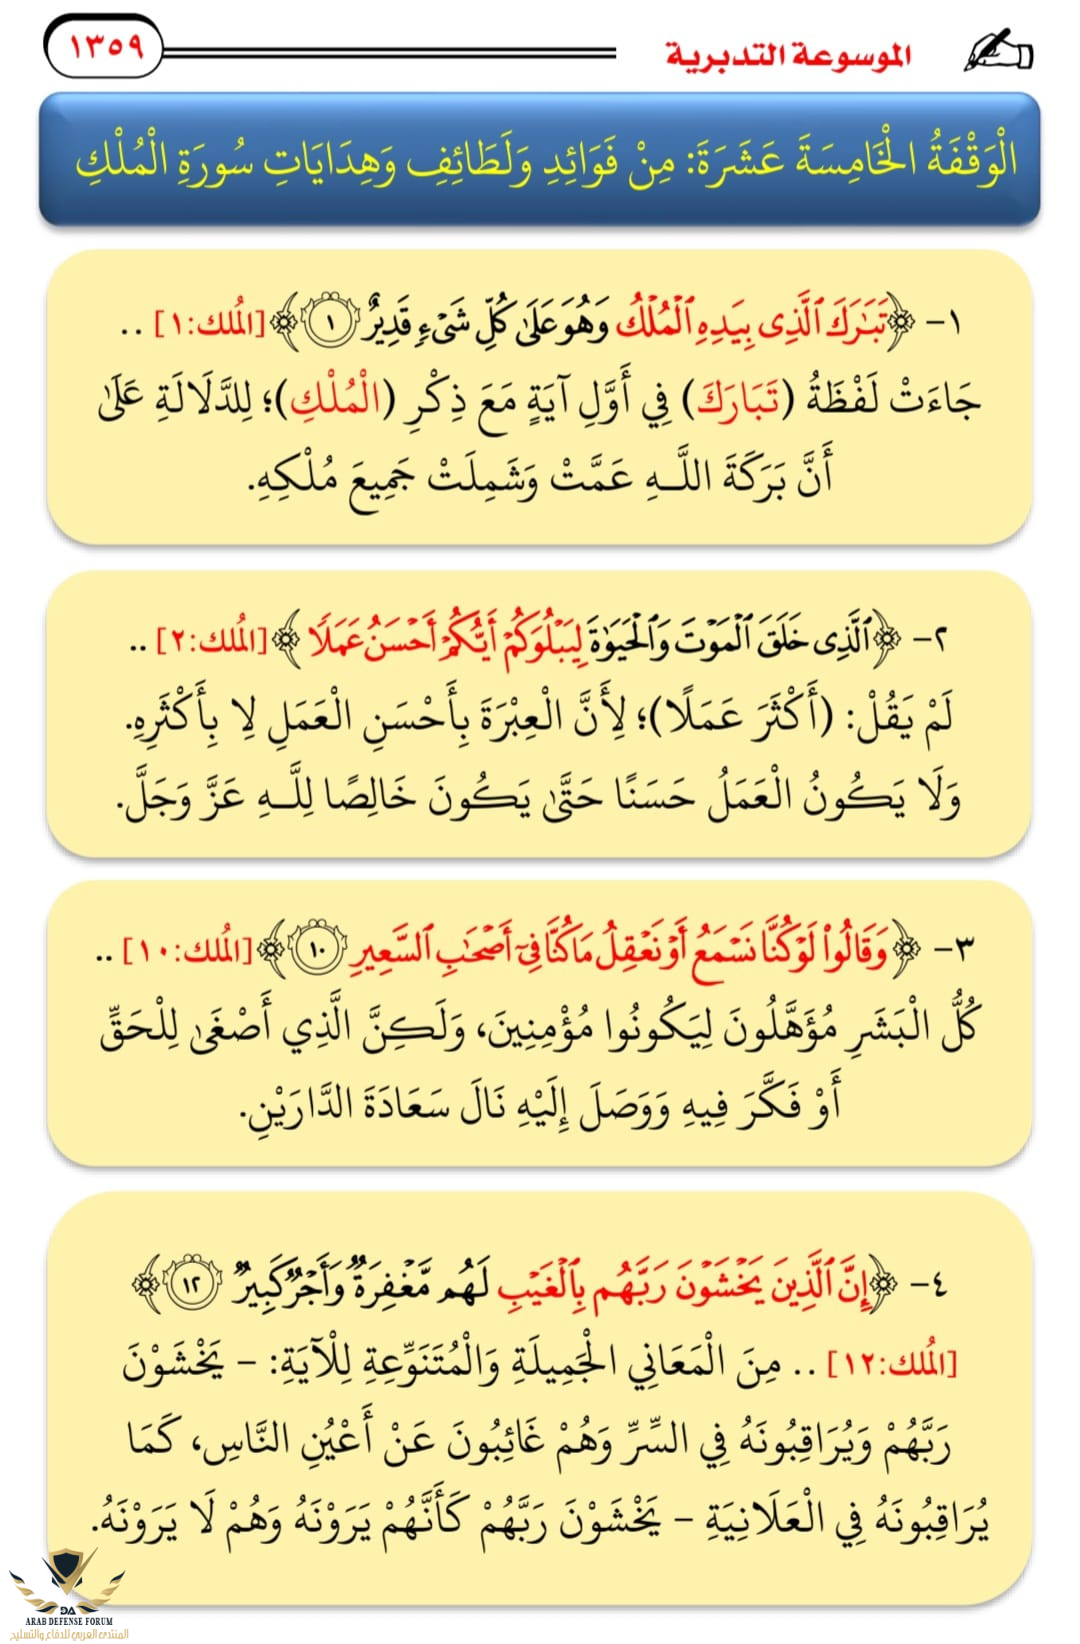 الموسوعة التدبرية
١٣٥٩
الْوَقْفَةُ الْخَامِسَةَ عَشَرَةَ: مِنْ فَوَائِدِ وَلَطَائِفِ وَهِدَايَاتِ سُورَةِ الْمُلْكِ
١- ﴿تَبَٰرَكَ ٱلَّذِى بِيَدِهِ ٱلْمُلْكُ وَهُوَ عَلَىٰ كُلِّ شَىْءٍ قَدِيرٌ ١﴾ [المُلك:١] ..
جَاءَتْ لَفْظَةُ (تَبَارَكَ) فِي أَوَّلِ آيَةٍ مَعَ ذِكْرِ (الْمُلْكِ)؛ لِلدَّلَالَةِ عَلَىٰ
أَنَّ بَرَكَةَ اللَّـهِ عَمَّتْ وَشَمِلَتْ جَمِيعَ مُلْكِهِ.
٢- ﴿ٱلَّذِى خَلَقَ ٱلْمَوْتَ وَٱلْحَيَوٰةَ لِيَبْلُوَكُمْ أَيُّكُمْ أَحْسَنُ عَمَلًا﴾ [المُلك:٢] ..
لَمْ يَقُلْ: (أَكْثَرَ عَمَلًا)؛ لِأَنَّ الْعِبْرَةَ بِأَحْسَنِ الْعَمَلِ لِا بِأَكْثَرِهِ.
وَلَا يَكُونُ الْعَمَلُ حَسَنًا حَتَّىٰ يَكُونَ خَالِصًا لِلَّـهِ عَزَّ وَجَلَّ.
٣- ﴿وَقَالُوا۟ لَوْ كُنَّا نَسْمَعُ أَوْ نَعْقِلُ مَا كُنَّا فِىٓ أَصْحَٰبِ ٱلسَّعِيرِ ١٠﴾ [المُلك:١٠] ..
كُلُّ الْبَشَرِ مُؤَهَّلُونَ لِيَكُونُوا مُؤْمِنِينَ، وَلَكِنَّ الَّذِي أَصْغَىٰ لِلْحَقِّ
أَوْ فَكَّرَ فِيهِ وَوَصَلَ إِلَيْهِ نَالَ سَعَادَةَ الدَّارَيْنِ.
٤- ﴿إِنَّ ٱلَّذِينَ يَخْشَوْنَ رَبَّهُم بِٱلْغَيْبِ لَهُم مَّغْفِرَةٌ وَأَجْرٌ كَبِيرٌ ١٢﴾
[المُلك:١٢] .. مِنَ الْمَعَانِي الْجَمِيلَةِ وَالْمُتَنَوِّعَةِ لِلْآيَةِ: - يَخْشَوْنَ
رَبَّهُمْ وَيُرَاقِبُونَهُ فِي السِّرِّ وَهُمْ غَائِبُونَ عَنْ أَعْيُنِ النَّاسِ، كَمَا
يُرَاقِبُونَهُ فِي الْعَلَانِيَةِ - يَخْشَوْنَ رَبَّهُمْ كَأَنَّهُمْ يَرَوْنَهُ وَهُمْ لَا يَرَوْنَهُ.
DA
ARAB DEFENSE FORUM
المنتدى العربي للدفاع والتسليح